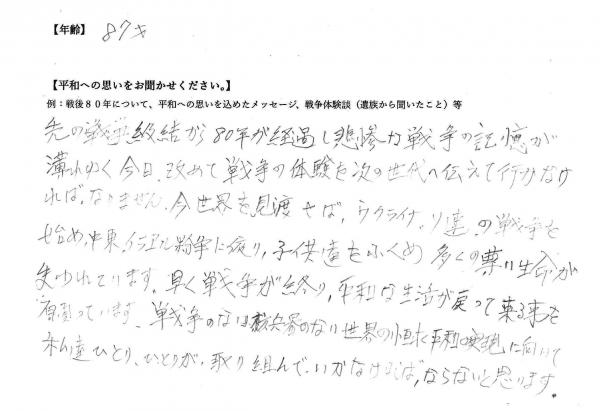 【年齢】 87才
【平和への思いをお聞かせください。】
例：戦後８０年について、平和への思いを込めたメッセージ、戦争体験談（遺族から聞いたこと）等
先の戦争終結から80年が経過し悲惨な戦争の記憶が
薄れゆく今日、改めて戦争の体験を次の世代へ伝えて行かなけ
ればなりません。今世界を見渡せば、ウクライナ、ソ連、の戦争を
始め、中東、イラエル紛争に废り、子供達をふくめ多くの尊い生命が
失われています。早く戦争が終り、平和な生活が戻って来る事を
願っています。戦争のない核兵器のない世界の恒久平和の実現に向けて
私達ひとり、ひとりが、取り組んで、いかなければ、ならないと思います。